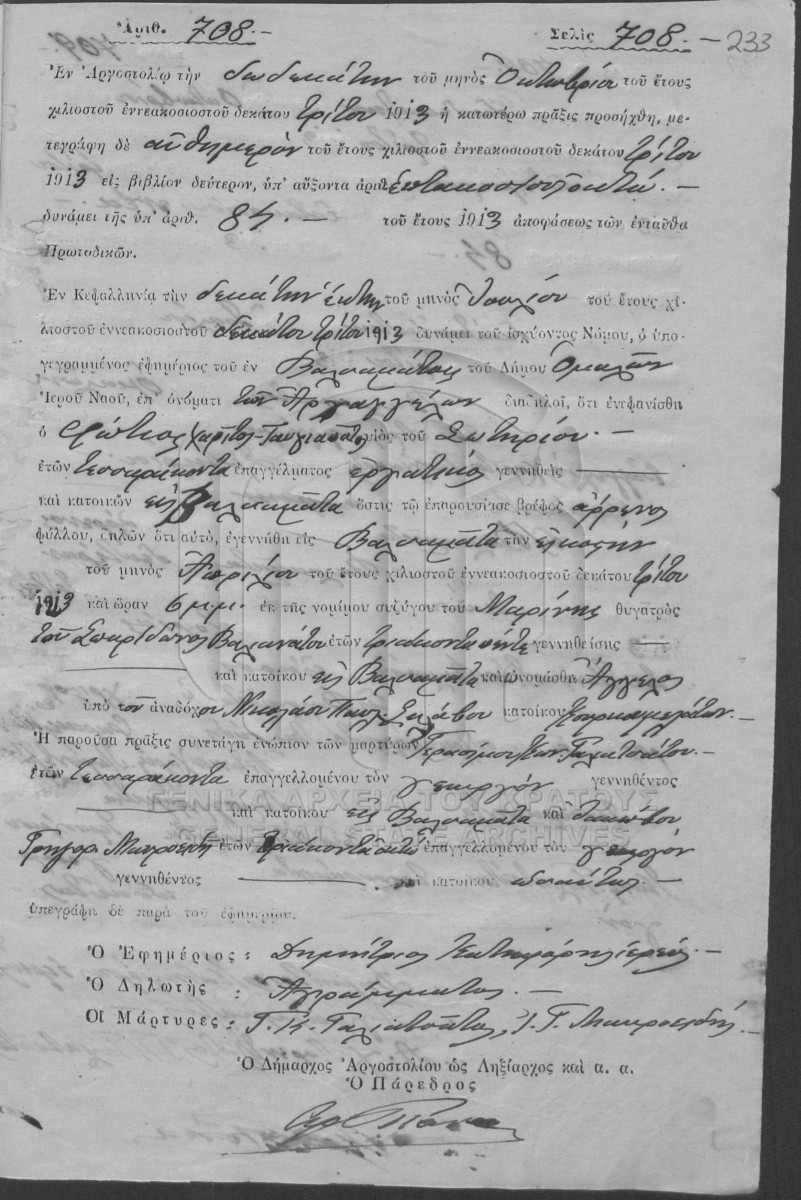 Ἀριθ. 708.- Σελὶς 708.- 233
Ἐν Ἀργοστολίῳ τὴν δωδεκάτην τοῦ μηνὸς Ὀκτωβρίου τοῦ ἔτους
χιλιοστοῦ ἐννεακοσιοστοῦ δεκάτου τρίτου 1913 ἡ κατωτέρω πρᾶξις προσήχθη, με-
τεγράφη δὲ αὐθημερὸν τοῦ ἔτους χιλιοστοῦ ἐννεακοσιοστοῦ δεκάτου τρίτου
1913 εἰς βιβλίον δεύτερον, ὑπ' αὔξοντα ἀριθ. ἑπτακοσιοστὸν ὀκτώ.-
δυνάμει τῆς ὑπ' ἀριθ. 84.- τοῦ ἔτους 1913 ἀποφάσεως τῶν ἐνταῦθα
Πρωτοδικῶν.
Ἐν Κεφαλληνίᾳ τὴν δεκάτην ἕκτην τοῦ μηνὸς Ἰουλίου τοῦ ἔτους χι-
λιοστοῦ ἐννεακοσιοστοῦ δεκάτου τρίτου 1913 δυνάμει τοῦ ἰσχύοντος Νόμου, ὁ ὑπο-
γεγραμμένος ἐφημέριος τοῦ ἐν Βαλσαμάτοις τοῦ Δήμου Ὁμαλῶν
Ἱεροῦ Ναοῦ, ἐπ' ὀνόματι τῶν Ἀρχαγγέλων διαδηλοῖ, ὅτι ἐνεφανίσθη
ὁ Φώτιος υἱὸς τοῦ Σωτηρίου.-
ἐτῶν τεσσαράκοντα ἐπαγγέλματος ἐργατικὸς γεννηθεὶς
καὶ κατοικῶν εἰς Βαλσαμάτα ὅστις τῷ ἐπαρουσίασε βρέφος ἄρρενος
φύλλου, δηλῶν ὅτι αὐτὸ, ἐγεννήθη εἰς Βαλσαμάτα τὴν εἰκοστὴν
τοῦ μηνὸς Ἀπριλίου τοῦ ἔτους χιλιοστοῦ ἐννεακοσιοστοῦ δεκάτου τρίτου
1913 καὶ ὥραν 6 μ.μ. ἐκ τῆς νομίμου συζύγου τοῦ Μαρίνης θυγατρὸς
τοῦ Σπυρίδωνος Βαλιανάτου ἐτῶν τριάκοντα πέντε γεννηθείσης
καὶ κατοίκου εἰς Βαλσαμάτα καὶ ὠνομάσθη Ἄγγελος
ὑπὸ τοῦ ἀναδόχου Νικολάου Παυλ. Σκλάβου κατοίκου
Ἡ παροῦσα πρᾶξις συνετάγη ἐνώπιον τῶν μαρτύρων Γερασίμου Κων. Γαλιατσάτου.-
ἐτῶν τεσσαράκοντα ἐπαγγελλομένου τὸν γεωργὸν γεννηθέντος
καὶ κατοίκου εἰς Βαλσαμάτα καὶ Ἰακώβου
Γρηγορ. Μαυροειδῆ ἐτῶν τριάκοντα ὀκτὼ ἐπαγγελλομένου τὸν γεωργὸν
γεννηθέντος καὶ κατοίκου ὡσαύτως.-
ὑπεγράφη δὲ παρὰ τοῦ ἐφημερίου.
Ὁ Ἐφημέριος: Δημήτριος ἱερεύς.-
Ὁ Δηλωτὴς: Ἀγράμματος.-
Οἱ Μάρτυρες: Γ. Κ. Γαλιατσάτος, Ἰ. Γ. Μαυροειδής.-
Ὁ Δήμαρχος Ἀργοστολίου ὡς Ληξίαρχος καὶ α. α.
Ὁ Πάρεδρος
ΓΕΝΙΚΑ ΑΡΧΕΙΑ ΤΟΥ ΚΡΑΤΟΥΣ
GENERAL STATE ARCHIVES